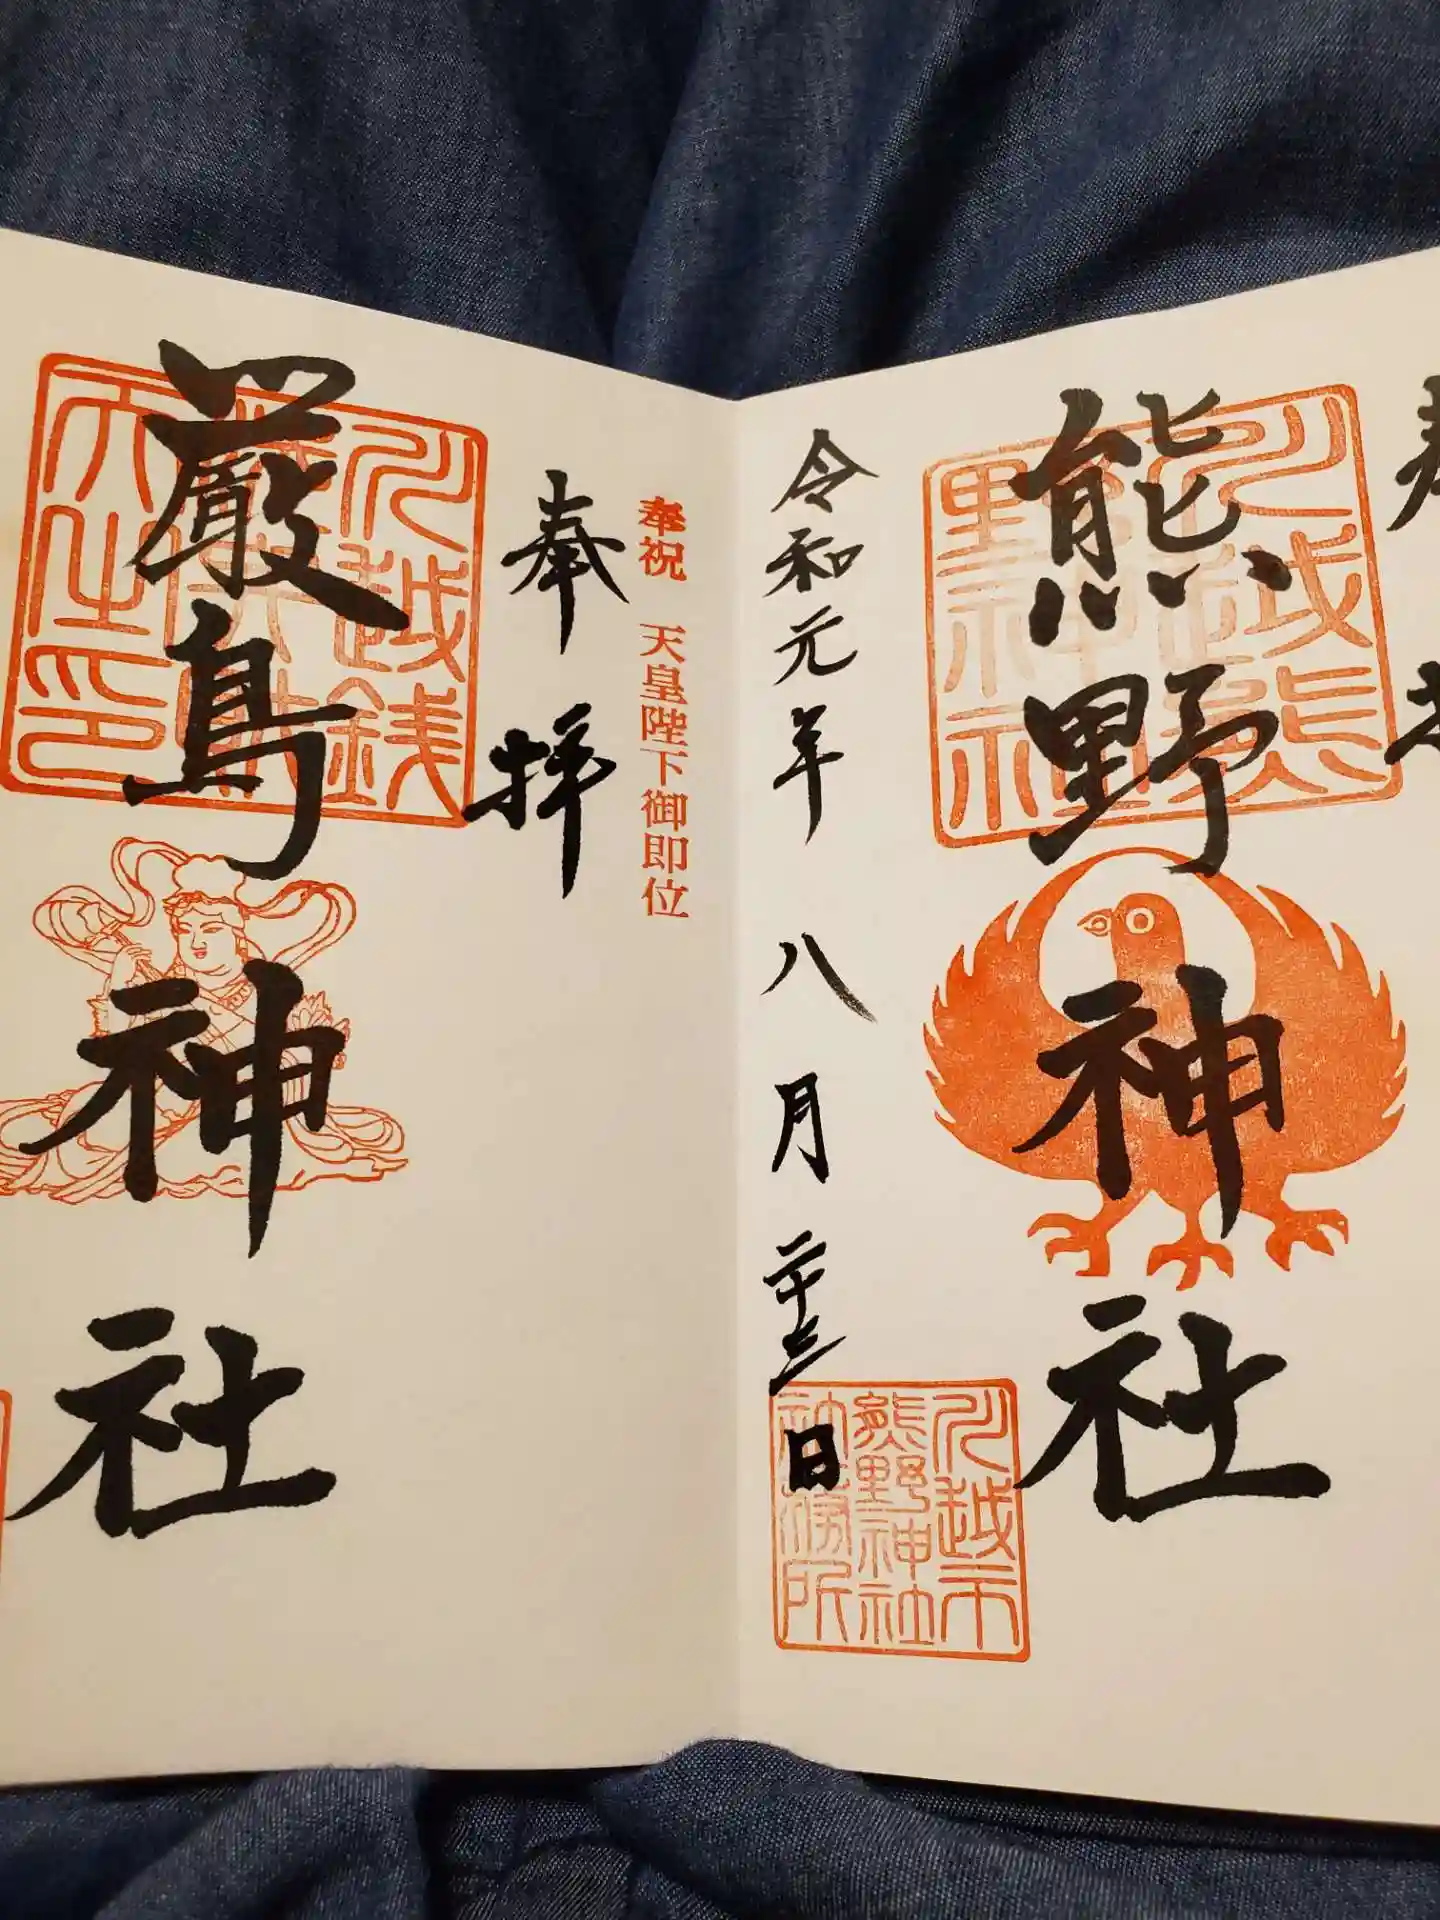 奉拝
熊野神社
川越熊
野神社
令和元年八月二十三日
川越市
熊野神社
社務所
奉祝 天皇陛下御即位
奉拝
厳島神社
川越銭
天之印